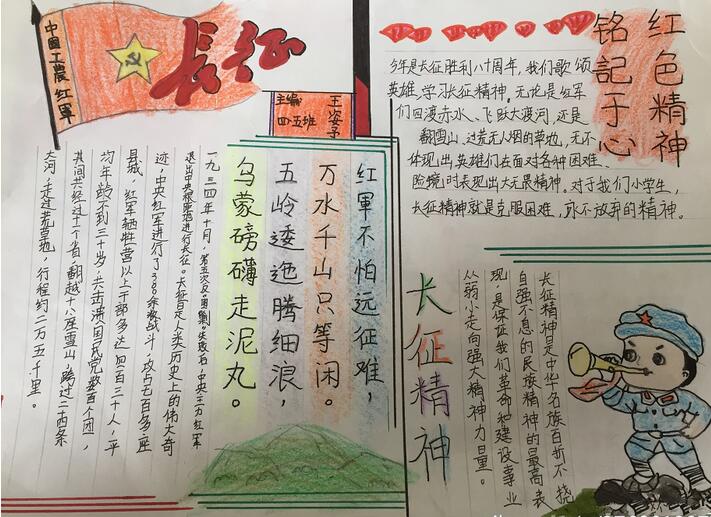 中国工農红軍
长征
主编
四.五班
王姿予
红軍不怕远征难，
万水千山只等闲。
五岭逶迤腾细浪，
乌蒙磅礴走泥丸。
一九三四年十月，第五次反围剿失败后，中央主力红軍
退出中央根据地进行长征。长征是人类历史上的伟大奇
迹，中央红軍进行了380余次战斗，攻占七百多座
县城，红军牺牲营以上干部多达四百三十人，平
均年龄不到三十岁，共击溃国民党数百个团，
其间共经过十一个省，翻越十八座雪山，跨过二十四条
大河，走过荒草地，行程约二万五千里。
红色精神
铭記于心
今年是长征胜利八十周年，我们歌颂
英雄，学习长征精神。无论是红军
们四渡赤水、飞跃大渡河，还是
翻雪山、过荒无人烟的草地，无不
体现出英雄们在面对各种困难、
险境时表现出大无畏精神。对于我们小学生，
长征精神就是克服困难，永不放弃的精神。
长征精神
长征精神是中华民族百折不挠
自强不息的民族精神的最高表
现，是保证我们革命和建设事业
从弱小走向强大精神力量。